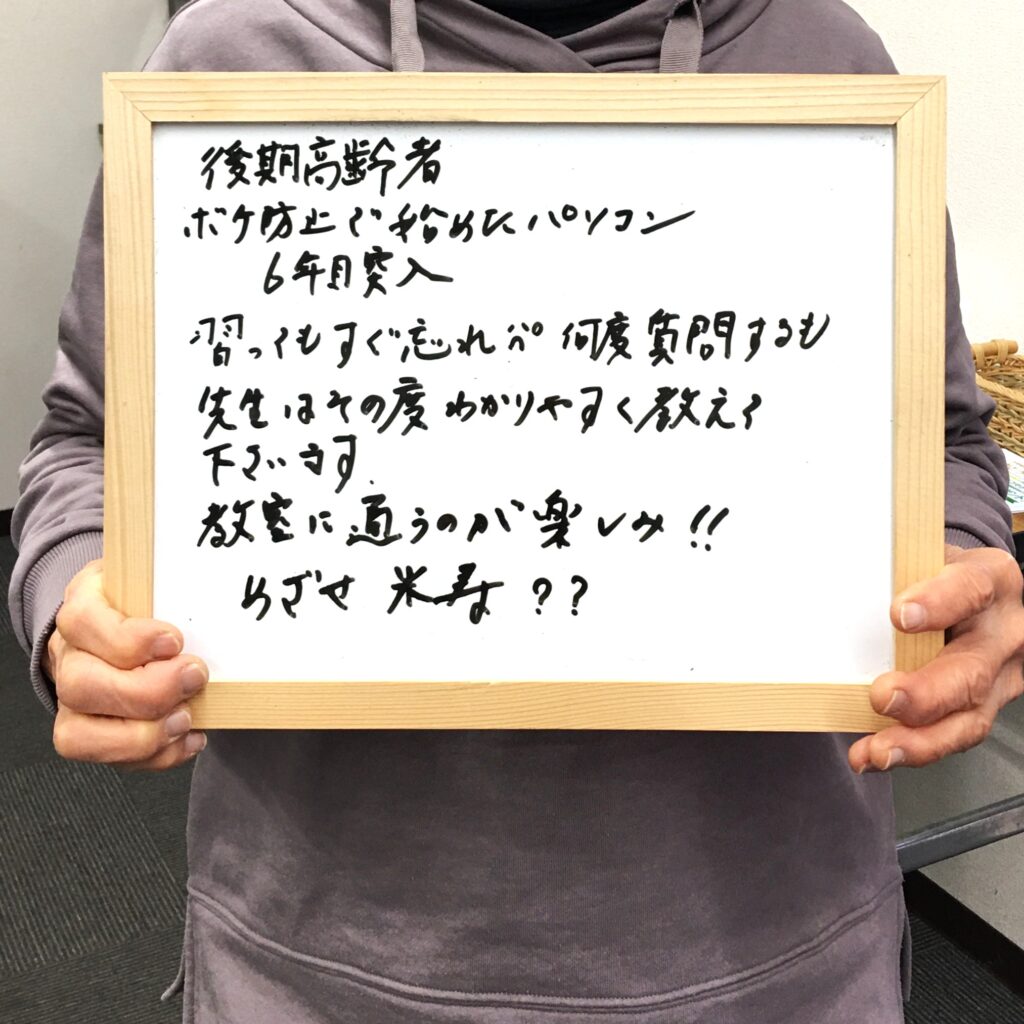 後期高齢者
ボケ防止で始めたパソコン
6年目突入
習ってもすぐ忘れパ 何度質問するも
先生はその度わかりやすく教えて
下さいます.
教室に通うのが楽しみ!!
めざせ 米寿 ??